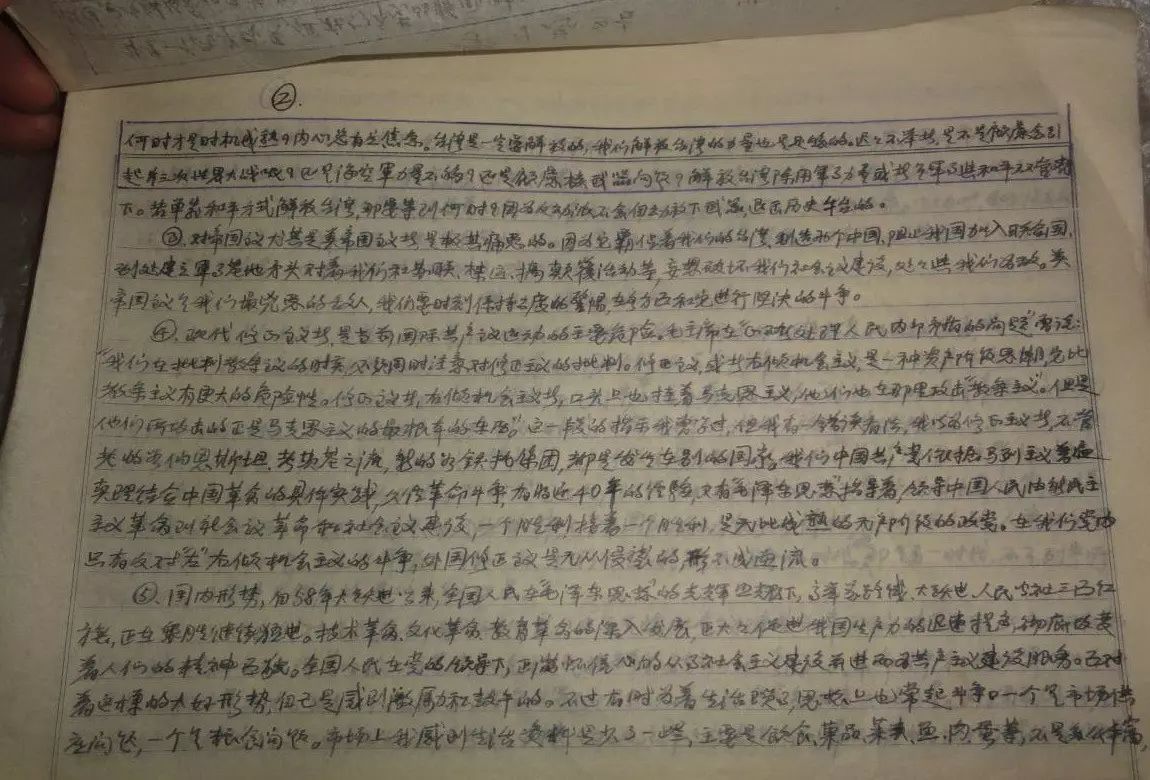 ②.
何时才是时机成熟？内心总有些焦急。台湾是一定要解放的，我们解放台湾的力量也是足够的。迟迟不解放，是不是顾虑会引
起第三次世界大战呢？还是海空军力量不够？还是依靠核武器问题？解放台湾除用军事力量或者军事进和平又管齐
下。若单靠和平方式解放台湾，那要等到何时？因为反动派不会自动放下武器，退出历史午台的。
③对帝国主义尤其是美帝国主义者是极其痛恶的。因为它霸占着我们的台湾，制造两个中国，阻止我国加入联合国，
到处建立军事基地矛头对着我们和苏联、禁运、搞颠复活动等，妄想破坏我们社会主义建设，这些我们
帝国主义是我们最凶恶的敌人，我们要时刻保持高度的警惕，在各方面和它进行坚决的斗争。
④现代修正主义者，是当前国际共产主义运动的主要危险。毛主席在"正确处理人民内部矛盾的问题"书说：
"我们在批判教条主义的时候，必须同时注意对修正主义的批判。修正主义，或者右倾机会主义，是一种资产阶级思潮，它比
教条主义有更大的危险性。修正主义者，右倾机会主义者，口头上也挂着马克思主义，他们也在那里攻击"教条主义"。但是
他们所攻击的正是马克思主义的最根本的东西。"这一段的指示我学过，但我有一错误看法，我以为修正主义者，不管
老的如伯恩斯坦，考茨基之流，新的如铁托集团，都是发生在别的国家。我们中国共产党依据马列主义普遍
真理结合中国革命的具体实践，久经革命斗争，有将近40年的经验，又有"毛泽东思想"指导着，领导中国人民由新民主
主义革命到社会主义革命和社会主义建设，一个胜利接着一个胜利，是无比成熟的无产阶级的政党。在我们党内
只有反对"左"右倾机会主义的斗争，外国修正主义是无从侵袭的，形不成逆流。
⑤国内形势，自58年大跃进以来，全国人民在"毛泽东思想"的光辉照耀下，高举总路线、大跃进、人民公社三面红
旗，正在乘胜继续跃进。技术革命、文化革命、教育革命的深入发展，正大大促进我国生产力的迅速提高，彻底改变
着人们的精神面貌。全国人民在党的领导下，正满怀信心的从事社会主义建设前进而为共产主义建设服务。面对
着这样的大好形势，自己是感到激励和鼓午的。不过有时为着生活琐事，思想上也常起斗争。一个是市场供
应问题，一个是粮食问题。市场上我感到生活资料是少了一些，主要是饮食、菓品、菜类、鱼、肉、蛋等，不是